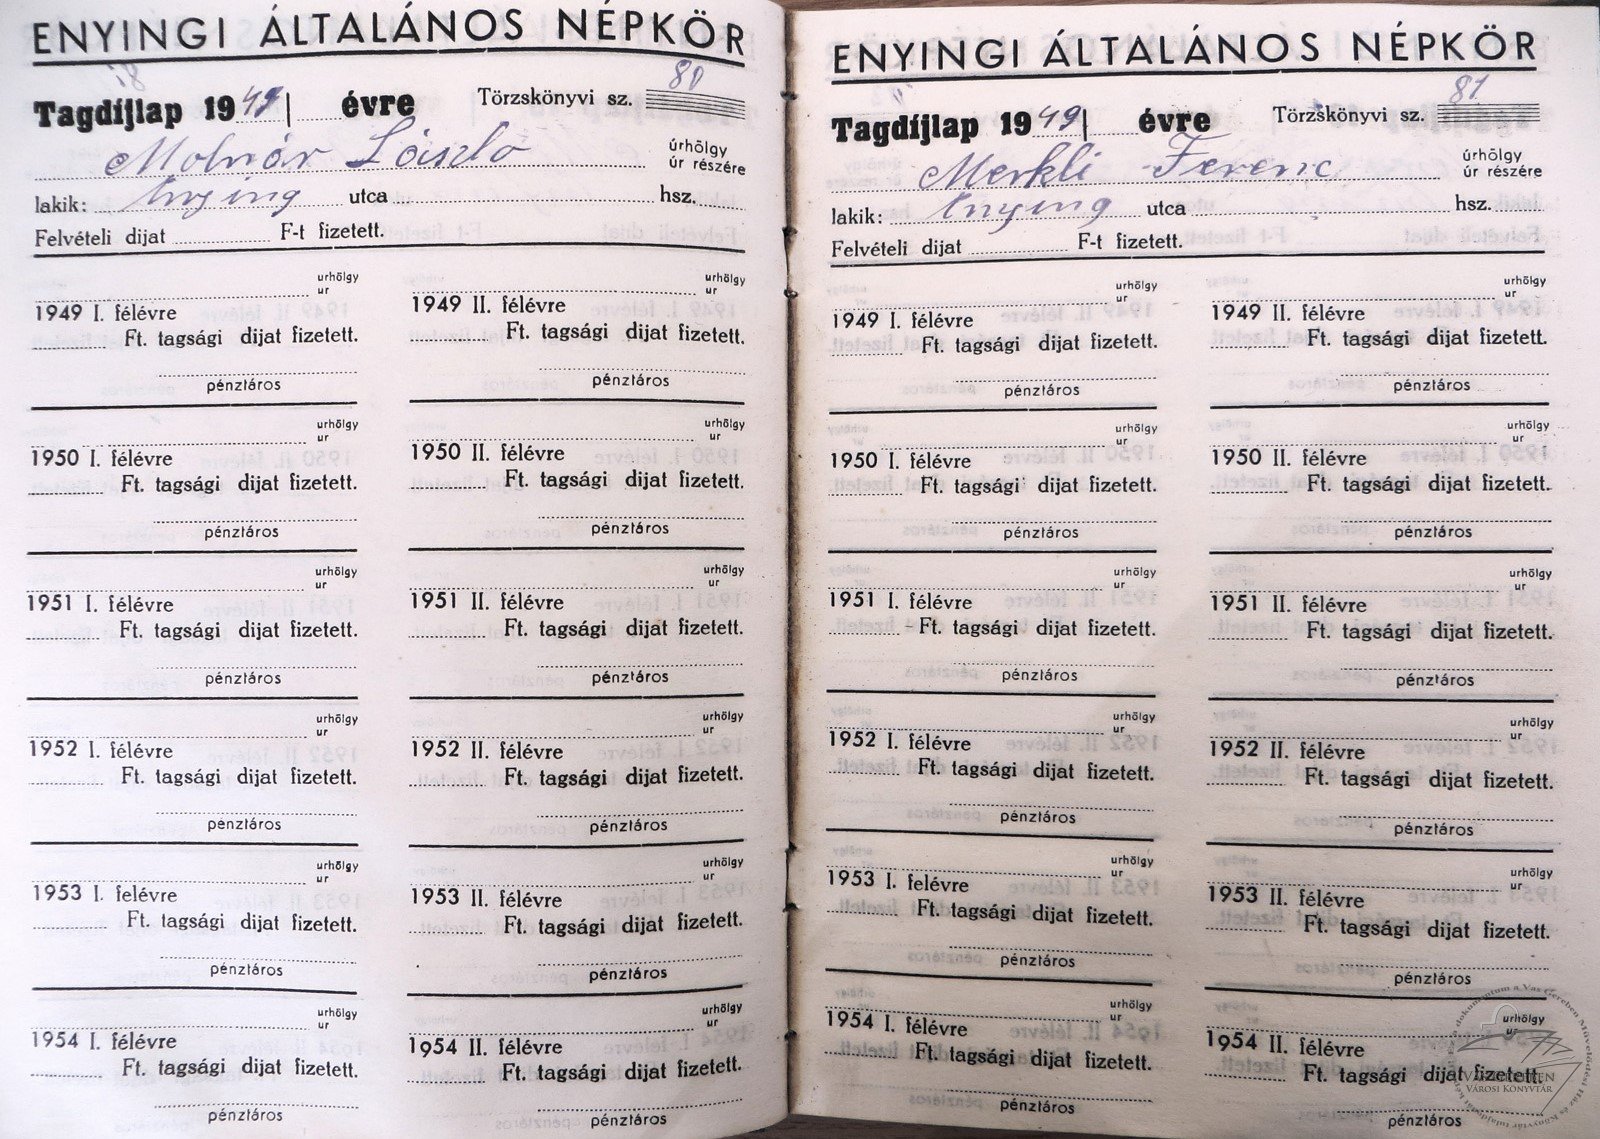 ENYINGI ÁLTALÁNOS NÉPKÖR
Tagdíjlap 1949 évre Törzskönyvi sz. 80
Molnár László úrhölgy
úr részére
lakik: Enying utca hsz.
Felvételi dijat F-t fizetett.
urhölgy
ur
1949 I. félévre
Ft. tagsági dijat fizetett.
pénztáros
urhölgy
ur
1949 II. félévre
Ft. tagsági dijat fizetett.
pénztáros
urhölgy
ur
1950 I. félévre
Ft. tagsági dijat fizetett.
pénztáros
urhölgy
ur
1950 II. félévre
Ft. tagsági dijat fizetett.
pénztáros
urhölgy
ur
1951 I. félévre
Ft. tagsági dijat fizetett.
pénztáros
urhölgy
ur
1951 II. félévre
Ft. tagsági dijat fizetett.
pénztáros
urhölgy
ur
1952 I. félévre
Ft. tagsági dijat fizetett.
pénztáros
urhölgy
ur
1952 II. félévre
Ft. tagsági dijat fizetett.
pénztáros
urhölgy
ur
1953 I. felévre
Ft. tagsági dijat fizetett.
pénztáros
urhölgy
ur
1953 II. félévre
Ft. tagsági dijat fizetett.
pénztáros
urhölgy
ur
1954 I. félévre
Ft. tagsági dijat fizetett.
pénztáros
urhölgy
ur
1954 II. félévre
Ft. tagsági dijat fizetett.
pénztáros
ENYINGI ÁLTALÁNOS NÉPKÖR
Tagdíjlap 1949 évre Törzskönyvi sz. 81
Merkli Ferenc úrhölgy
úr részére
lakik: Enying utca hsz.
Felvételi dijat F-t fizetett.
urhölgy
ur
1949 I. félévre
Ft. tagsági dijat fizetett.
pénztáros
urhölgy
ur
1949 II. félévre
Ft. tagsági dijat fizetett.
pénztáros
urhölgy
ur
1950 I. félévre
Ft. tagsági dijat fizetett.
pénztáros
urhölgy
ur
1950 II. félévre
Ft. tagsági dijat fizetett.
pénztáros
urhölgy
ur
1951 I. félévre
Ft. tagsági dijat fizetett.
pénztáros
urhölgy
ur
1951 II. félévre
Ft. tagsági dijat fizetett.
pénztáros
urhölgy
ur
1952 I. félévre
Ft. tagsági dijat fizetett.
pénztáros
urhölgy
ur
1952 II. félévre
Ft. tagsági dijat fizetett.
pénztáros
urhölgy
ur
1953 I. félévre
Ft. tagsági dijat fizetett.
pénztáros
urhölgy
ur
1953 II. félévre
Ft. tagsági dijat fizetett.
pénztáros
urhölgy
ur
1954 I. félévre
Ft. tagsági dijat fizetett.
pénztáros
urhölgy
ur
1954 II. félévre
Ft. tagsági dijat fizetett.
pénztáros
VÁROSI KÖNYVTÁR